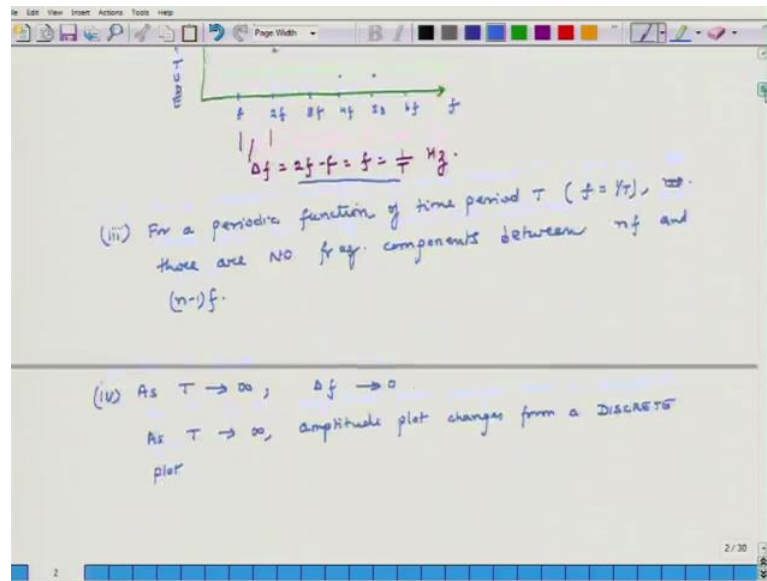 File Edit View Insert Actions Tools Help
Page Width
T U D E
f 2f 3f 4f 5f 6f f
Δf = 2f - f = f = 1/T Hz.
(iii) For a periodic function of time period T ( f = 1/T ),
there are NO freq. components between nf and
(n-1)f.
(iv) As T → ∞, Δf → 0.
As T → ∞, amplitude plot changes from a DISCRETE
plot
2 / 30
2